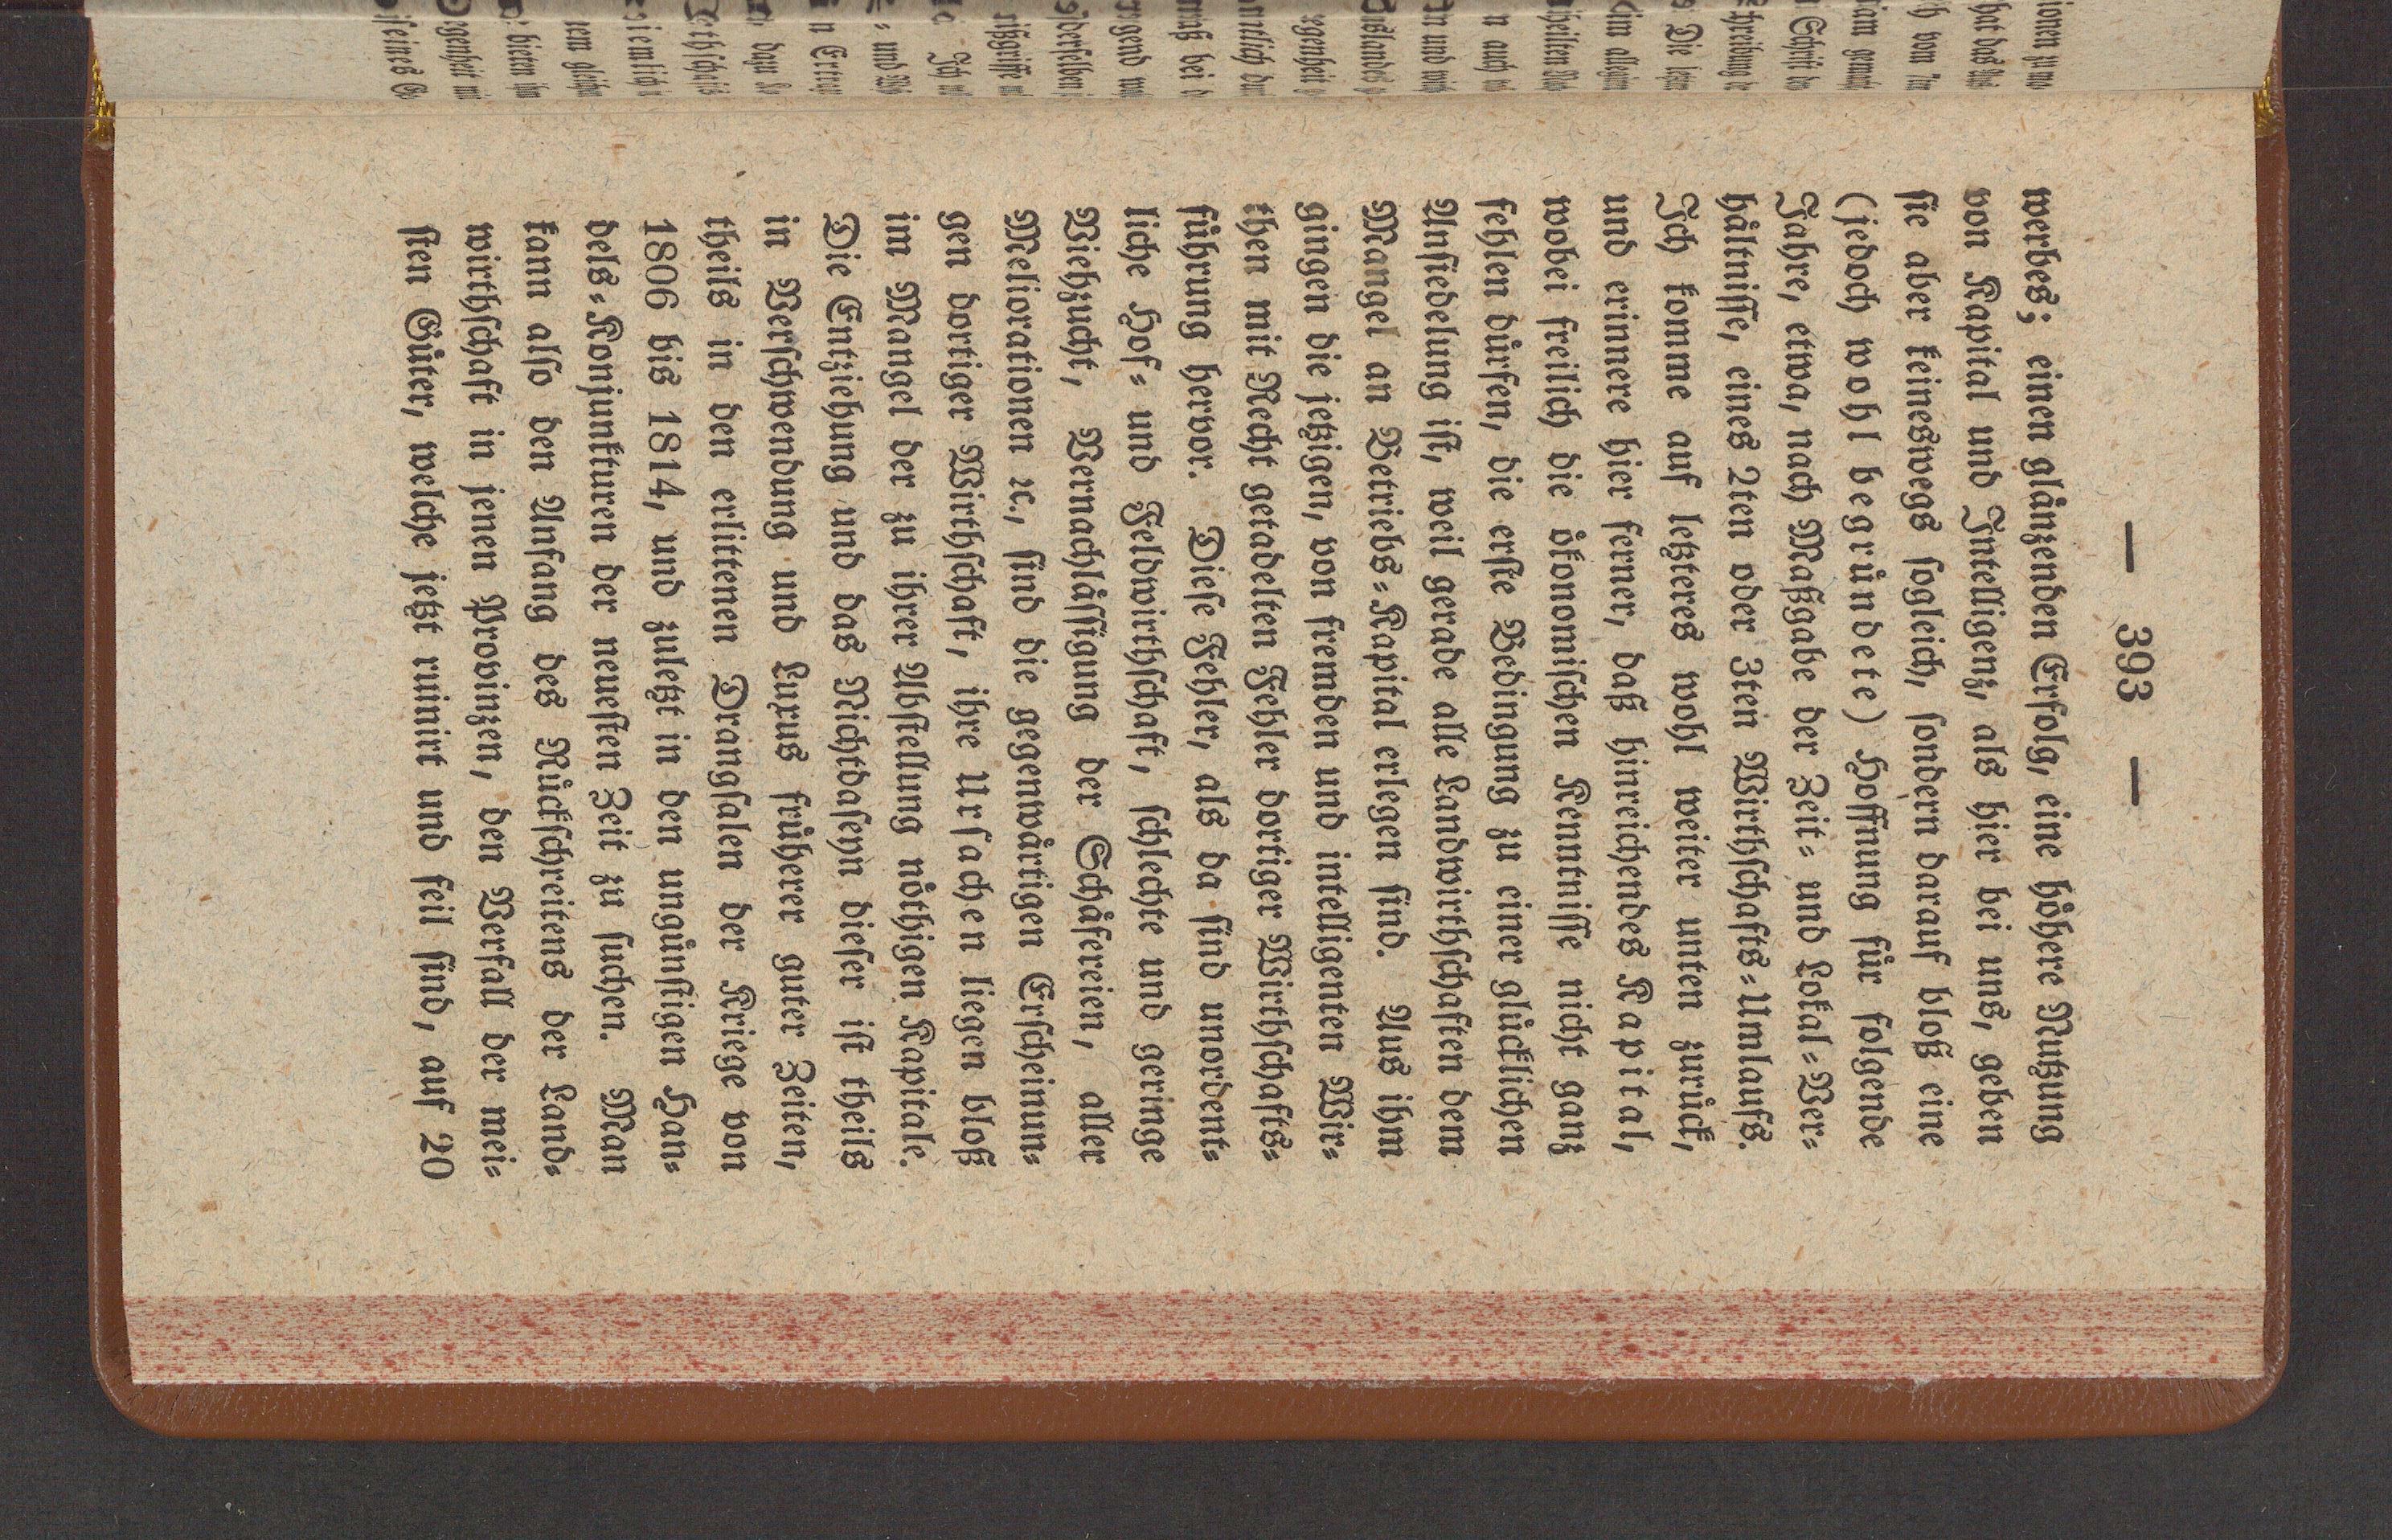 — 393 —
werbes; einen glänzenden Erfolg, eine höhere Nutzung
von Kapital und Intelligenz, als hier bei uns, geben
sie aber keineswegs sogleich, sondern darauf bloß eine
(jedoch wohl begründete) Hoffnung für folgende
Jahre, etwa, nach Maßgabe der Zeit- und Lokal-Ver-
hältnisse, eines 2ten oder 3ten Wirthschafts-Umlaufs.
Ich komme auf letzteres wohl weiter unten zurück,
und erinnere hier ferner, daß hinreichendes Kapital,
wobei freilich die ökonomischen Kenntnisse nicht ganz
fehlen dürfen, die erste Bedingung zu einer glücklichen
Ansiedelung ist, weil gerade alle Landwirthschaften dem
Mangel an Betriebs-Kapital erlegen sind. Aus ihm
gingen die jetzigen, von fremden und intelligenten Wir-
then mit Recht getadelten Fehler dortiger Wirthschafts-
führung hervor. Diese Fehler, als da sind unordent-
liche Hof- und Feldwirthschaft, schlechte und geringe
Viehzucht, Vernachlässigung der Schäfereien, aller
Meliorationen ꝛc., sind die gegenwärtigen Erscheinun-
gen dortiger Wirthschaft, ihre Ursachen liegen bloß
im Mangel der zu ihrer Abstellung nöthigen Kapitale.
Die Entziehung und das Nichtdaseyn dieser ist theils
in Verschwendung und Luxus früherer guter Zeiten,
theils in den erlittenen Drangsalen der Kriege von
1806 bis 1814, und zuletzt in den ungünstigen Han-
dels-Konjunkturen der neuesten Zeit zu suchen. Man
kann also den Anfang des Rückschreitens der Land-
wirthschaft in jenen Provinzen, den Verfall der mei-
sten Güter, welche jetzt ruinirt und feil sind, auf 20